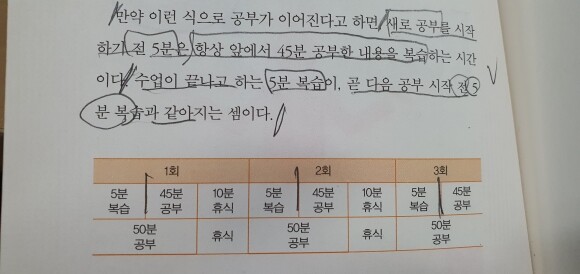 만약 이런 식으로 공부가 이어진다고 하면, 새로 공부를 시작
하기 전 5분은 항상 앞에서 45분 공부한 내용을 복습하는 시간
이다. 수업이 끝나고 하는 5분 복습이, 곧 다음 공부 시작 전 5
분 복습과 같아지는 셈이다.
1회 2회 3회
5분 45분 10분 5분 45분 10분 5분 45분
복습 공부 휴식 복습 공부 휴식 복습 공부
50분 휴식 50분 휴식 50분
공부 공부 공부